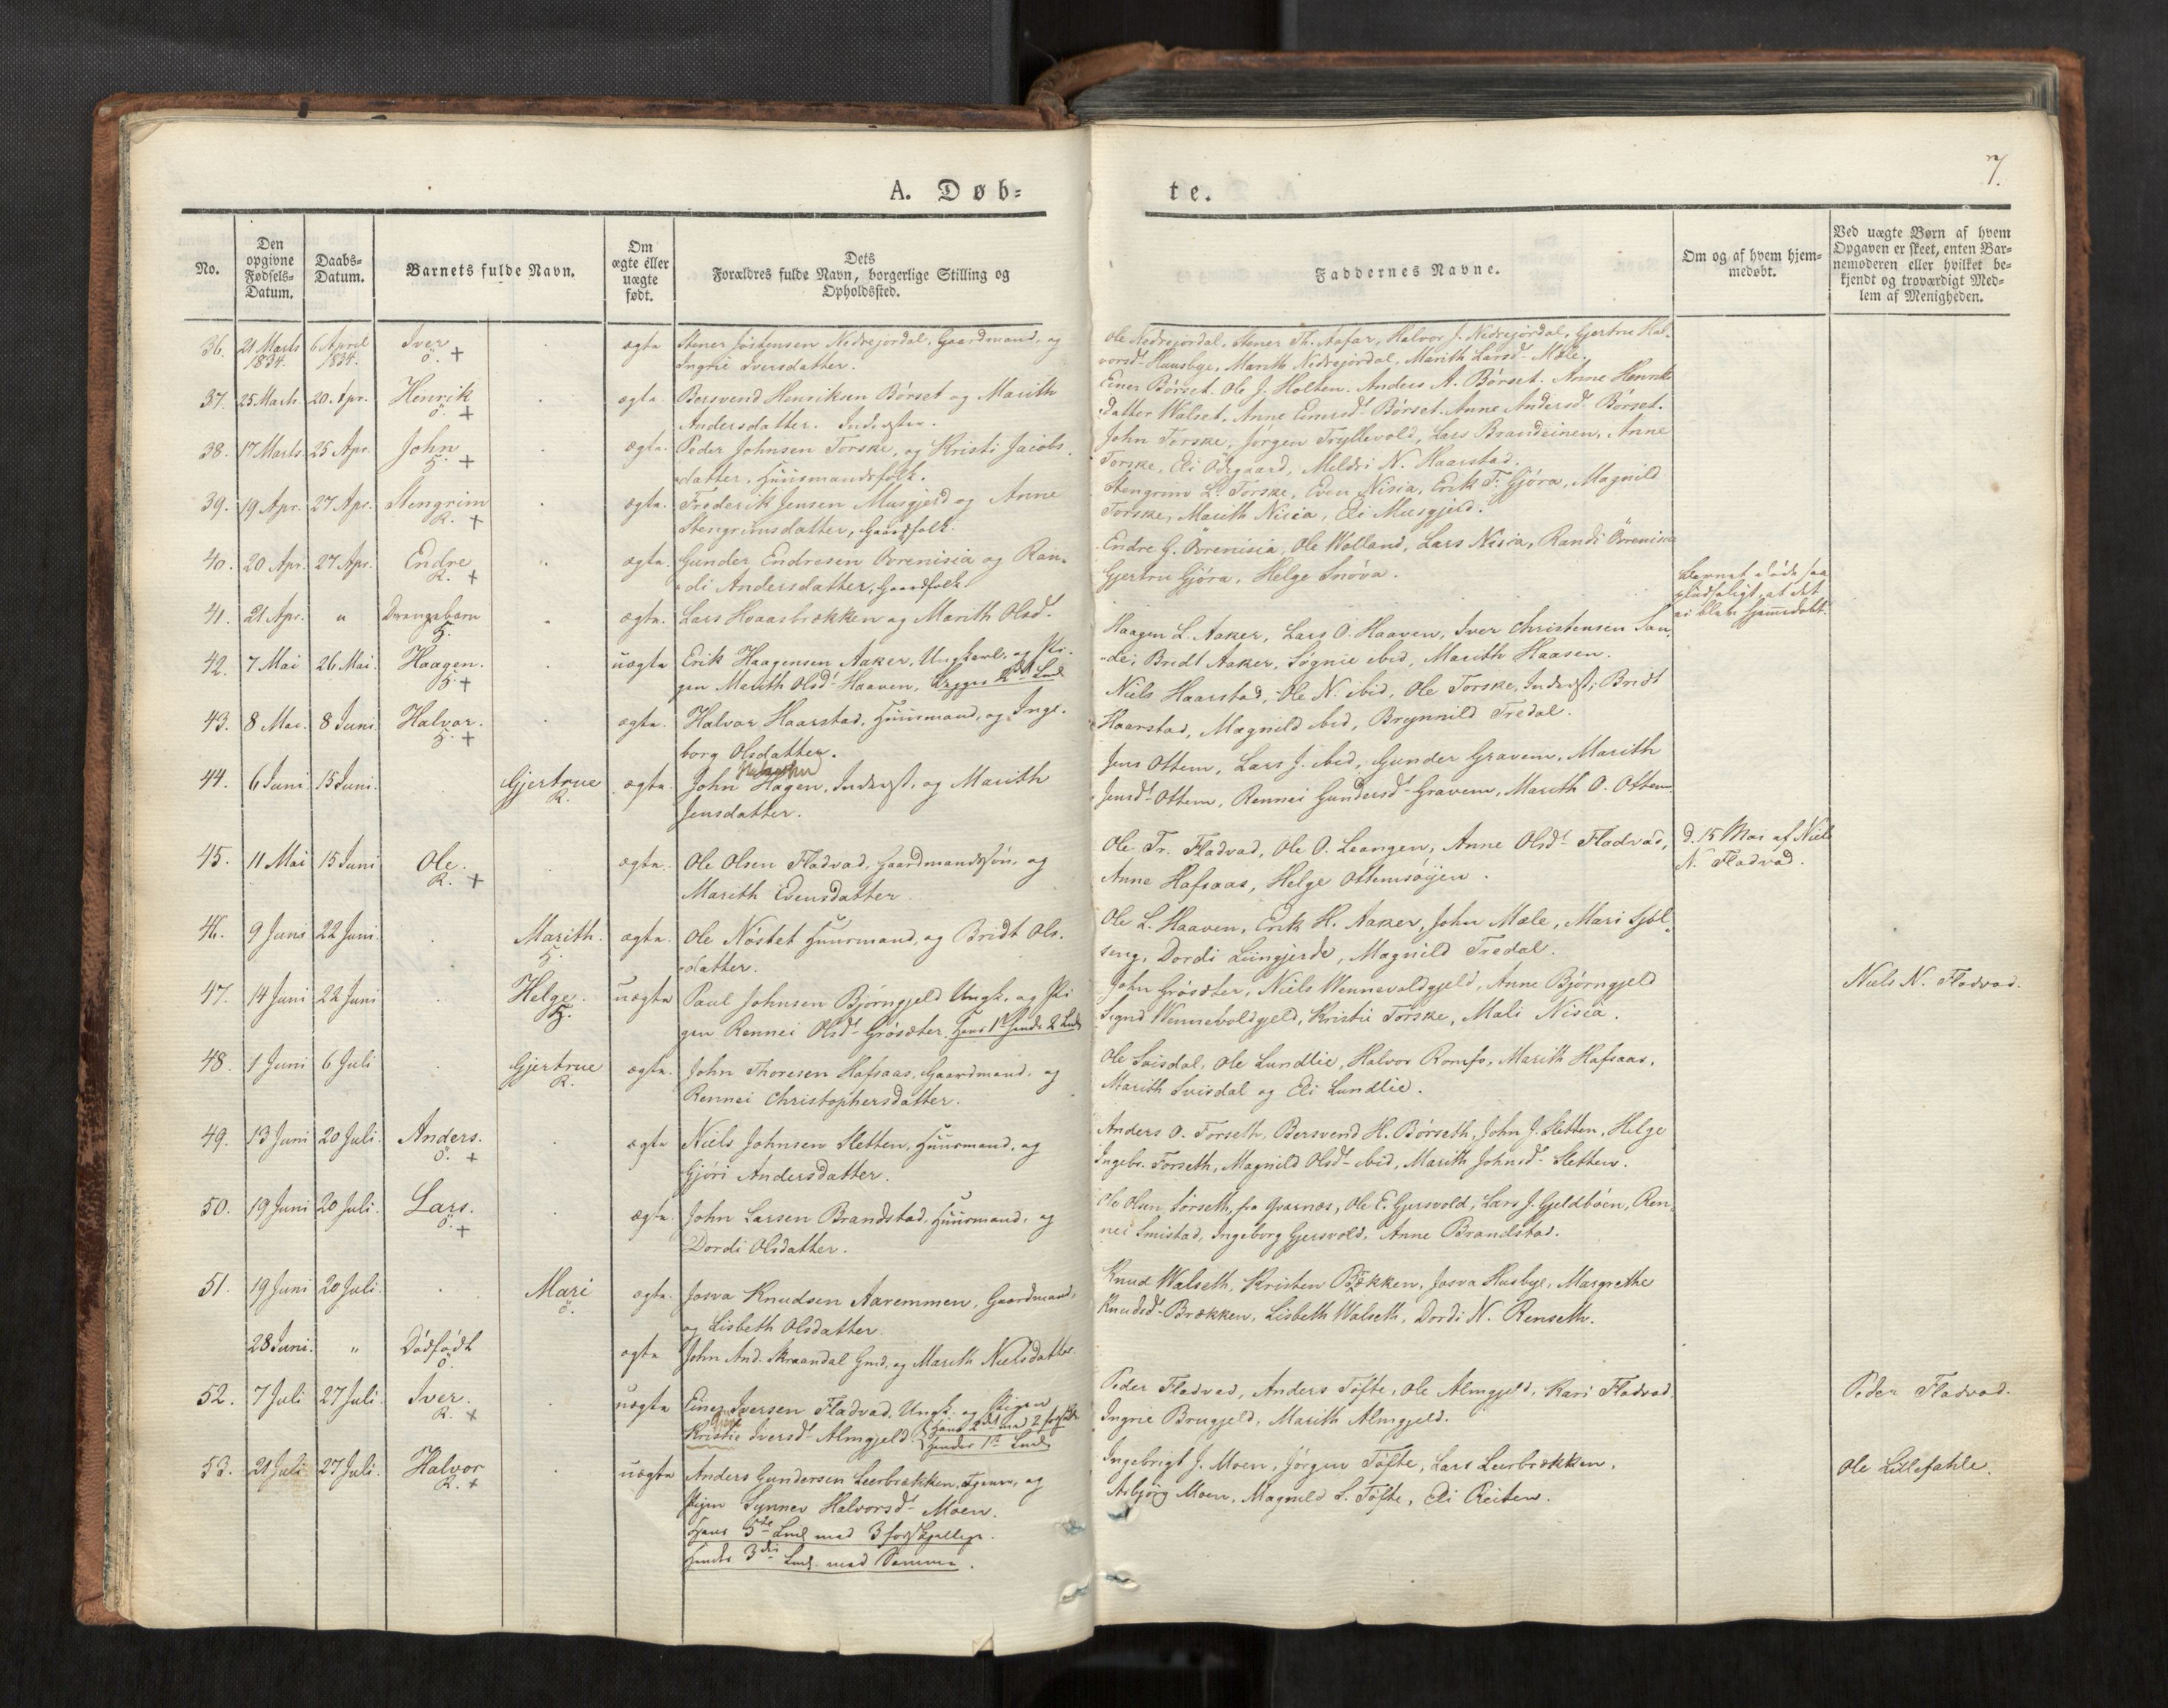 7.
A. Døb=
te.
No.
Den opgivne Fødsels-Datum.
Daabs-Datum.
Barnets fulde Navn.
Om ægte eller uægte født.
Dets Forældres fulde Navn, borgerlige Stilling og Opholdssted.
Faddernes Navne.
Om og af hvem hjemmedøbt.
Ved uægte Børn af hvem Opgaven er skeet, enten Barnemoderen eller hvilket bekjendt og troværdigt Medlem af Menigheden.
36. 21 Marts 1834. 6 April 1834. Iver ö. + ægte Stener Jöstensen Nedrejordal, Gaardmand, og
Ingrie Iversdatter.
Ole Nedrejordal, Stener Th. Aafar, Halvor J. Nedrejördal, Gjertru Hal-
vorsd. Huusbye, Marith Nedrejördal, Marith Larsd. Mæle.
37. 25 Marts. 20. Apr. Henrik ö. + ægte. Bersvend Henriksen Börset og Marith
Andersdatter. Inderster.
Einer Börset. Ole J. Holten. Anders A. Börset. Anne Henriks
datter Walset. Anne Einersd. Börset. Anne Andersd. Börset.
38. 17 Marts. 25 Apr. John H. + ægte. Peder Johnsen Torske, og Kristi Jacobs
datter, Huusmandsfolk.
John Torske, Jörgen Tryllevold, Lars Brandeinen, Anne
Torske, Eli Ödegaard, Meldri N. Haarstad.
39. 19 Apr. 27 Apr. Stengrim R. + ægte. Frederik Jensen Musgjerd og Anne
Stengrimsdatter, Gaardfolk.
Stengrim L. Torske, Even Nisia, Erik F. Gjöra, Magnild
Torske, Marith Nisia, Eli Musgjerd.
40. 20 Apr. 27 Apr. Endre R. + ægte. Gunder EndresenÖvrenisia og Ran-
di Andersdatter, Gaardfolk.
Endre G. Övrenisia, Ole Wolland, Lars Nisia, Randi Övrenisia
Gjertru Gjöra, Helge Snöva.
41. 21 Apr. " Drengebarn H. ægte. Lars Hoaasbrækken og Marith Olsd.
Barnet döde saa
pludseligt, at det
ei blev hjemmedöbt.
42. 7 Mai 26 Mai. Haagen. H. + uægte Erik Haagensen Aaker, Ungkarl, og Pi-
gen Marith Olsd. Haaven, Begges Leierm.
Haagen L. Aaker, Lars O. Haaven, Iver Christensen San-
de, Bridt Aaker, Sögnie ibid, Marith Haasen.
43. 8 Mai. 8 Juni Halvor. H. + ægte. Halvor Haarstad, Huusmand, og Inge-
borg Olsdatter.
Niels Haarstad, Ole N. ibid, Ole Torske, Inderst, Bridt
Haarstad, Magnild ibid, Brynnild Tredal.
44. 6 Juni 15 Juni. Gjertrue R. ægte. John Hagen, Inderst, og Marith
Jensdatter.
Jens Ottem, Lars J. ibid, Gunder Gravem, Marith
Jensd. Ottem, Rennei Gundersd. Gravem, Marith O. Ottem.
45. 11 Mai 15 Juni Ole. R. + ægte. Ole Olsen Fladvad, Gaardmandssön, og
Marith Evensdatter.
Ole Tr. Fladvad, Ole O. Leangen, Anne Olsd. Fladvad,
Anne Hafsaas, Helge Ottemsöyen.
d. 15 Mai af Niels
N. Fladvad.
46. 9 Juni 22 Juni. Marith. H. ægte. Ole Nöstet Huusmand, og Bridt Ols-
datter.
Ole L. Haaven, Erik H. Aaker, John Mæle, Mari Sjöl-
seng, Dordi Liingjerde, Magnild Tredal.
47. 14 Juni 22 Juni Helge. H. uægte Paul Johnsen Björngjeld Ungk. og Pi
gen Rennei Olsd. Grösæter. Hans 1ste Hendes 2 Leierm.
John Grösæter, Niels Wennevoldgjeld, Anne Björngjeld
Signd Wennevoldgjeld, Kristie Torske, Mali Nisia.
Niels N. Fladvad.
48. 1 Juni 6 Juli Gjertrue R. ægte. John Thoresen Hafsaas, Gaardmand, og
Rennei Christophersdatter.
Ole Svisdal, Ole Lundlie, Halvor Romfo, Marith Hafsaas,
Marith Svisdal og Eli Lundlie.
49. 13 Juni 20 Juli. Anders. ö. + ægte Niels Johnsen Sletten, Huusmand, og
Gjöri Andersdatter.
Anders O. Forseth, Bersvend H. Börseth, John J. Sletten, Helge
Ingebr. Forseth, Magnild Olsd. ibid, Marith Johnsd. Sletten.
50. 19 Juni 20 Juli. Lars. ö. + ægte. John Larsen Brandstad, Huusmand, og
Dordi Olsdatter.
Ole Olsen Törseth, fra Qvernæs, Ole E. Gjersvold, Lars J. Gjeldböen, Ren-
nei Smistad, Ingeborg Gjersvold, Anne Brandstad.
51. 19 Juni 20 Juli. Mari ö. ægte. Josva Knudsen Aaremmen, Gaardmand,
og Lisbeth Olsdatter.
Knud Walseth, Kristen Brækken, Josva Husbye, Margrethe
Knudsd. Brækken, Lisbeth Walseth, Dordi N. Renseth.
28 Juni. " Dödfödt ö. ægte John And. Skraandal Gmd. og Marith Nielsdatter.
52. 7 Juli 27 Juli. Iver. R. + uægte Einer Iversen Fladvad, Ungk. og Pigen
Kristie Iversd. Almgjeld. Hans 2det med 2 forskj.
Hendes 1ste Leierm.
Peder Fladvad, Anders Töfte, Ole Almgjeld, Kari Fladvad.
Ingrie Brugjeld, Marith Almgjeld.
Peder Fladvad.
53. 21 Juli 27 Juli. Halvor R. + uægte Anders Gundersen Leerbrækken, og
Pigen Synnev Halvorsd. Moen.
Hans 5te Leierm. med 3 forskjellige.
Hendes 3die Leierm. med Samme.
Ingebrigt J. Moen, Jörgen Töfte, Lars Leerbrækken,
Asbjörg Moen, Magnild L. Töfte, Eli Reiten.
Ole Lillefahle.